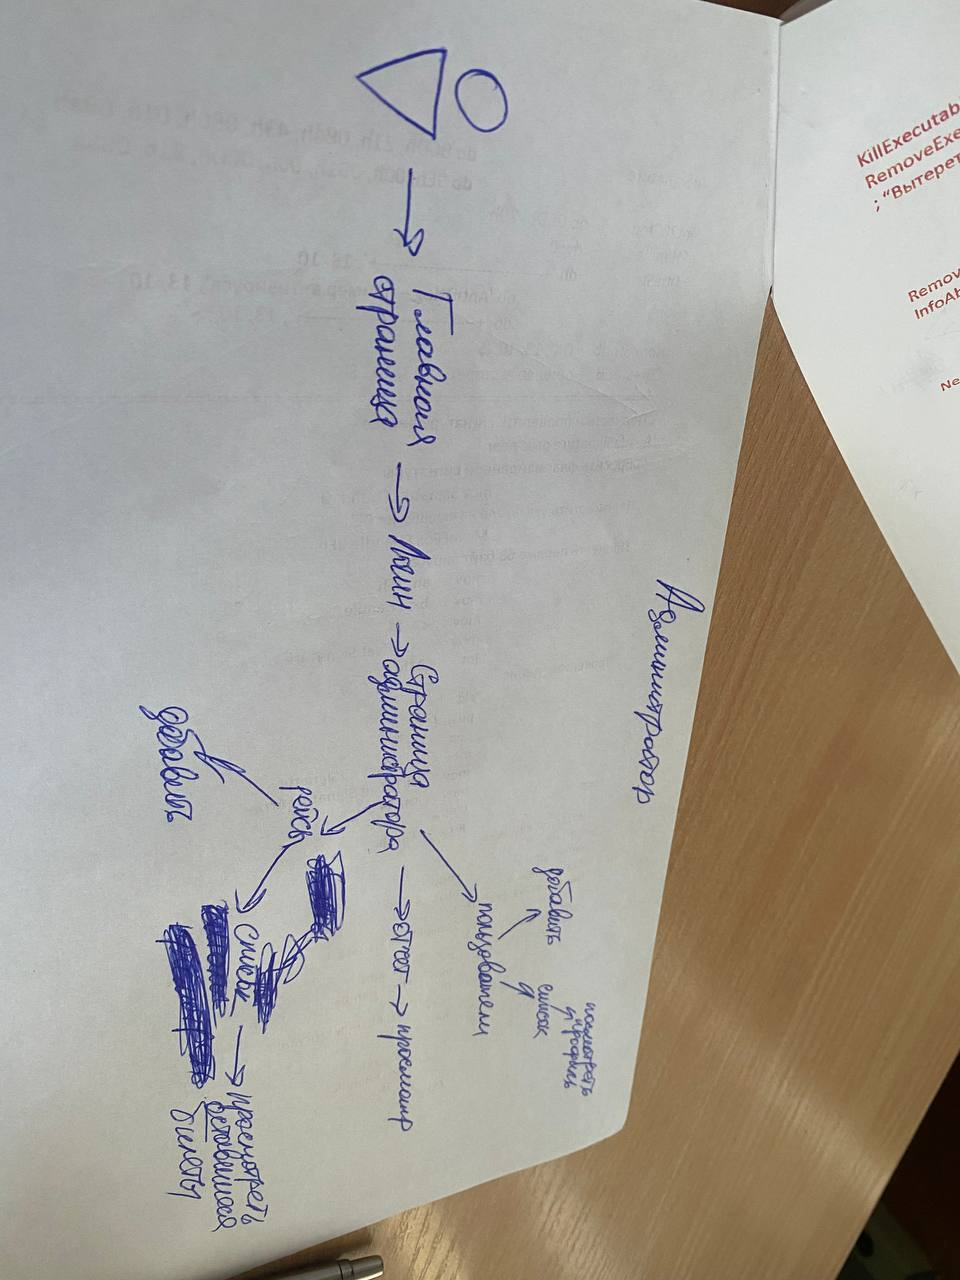 Администратор
Главная
страница
Логин
Страница
администратора
пользователи
добавить
список
посмотреть
профиль
отчет
просмотр
рейсы
добавить
список
просмотреть
оставшиеся
билеты
KillExecutab
RemoveExe
; “Вытерет
Remov
InfoAb
Ne